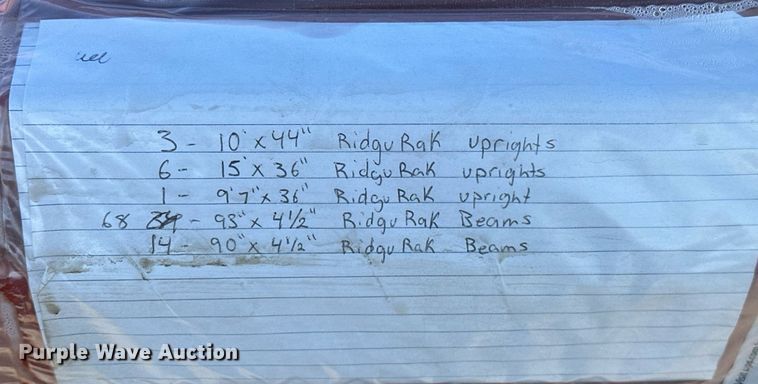 3 - 10' x 44" Ridgu Rak uprights
6 - 15' x 36" Ridgu Rak uprights
1 - 9'7" x 36" Ridgu Rak upright
68 - 93" x 4 1/2" Ridgu Rak Beams
14 - 90" x 4 1/2" Ridgu Rak Beams
Purple Wave Auction